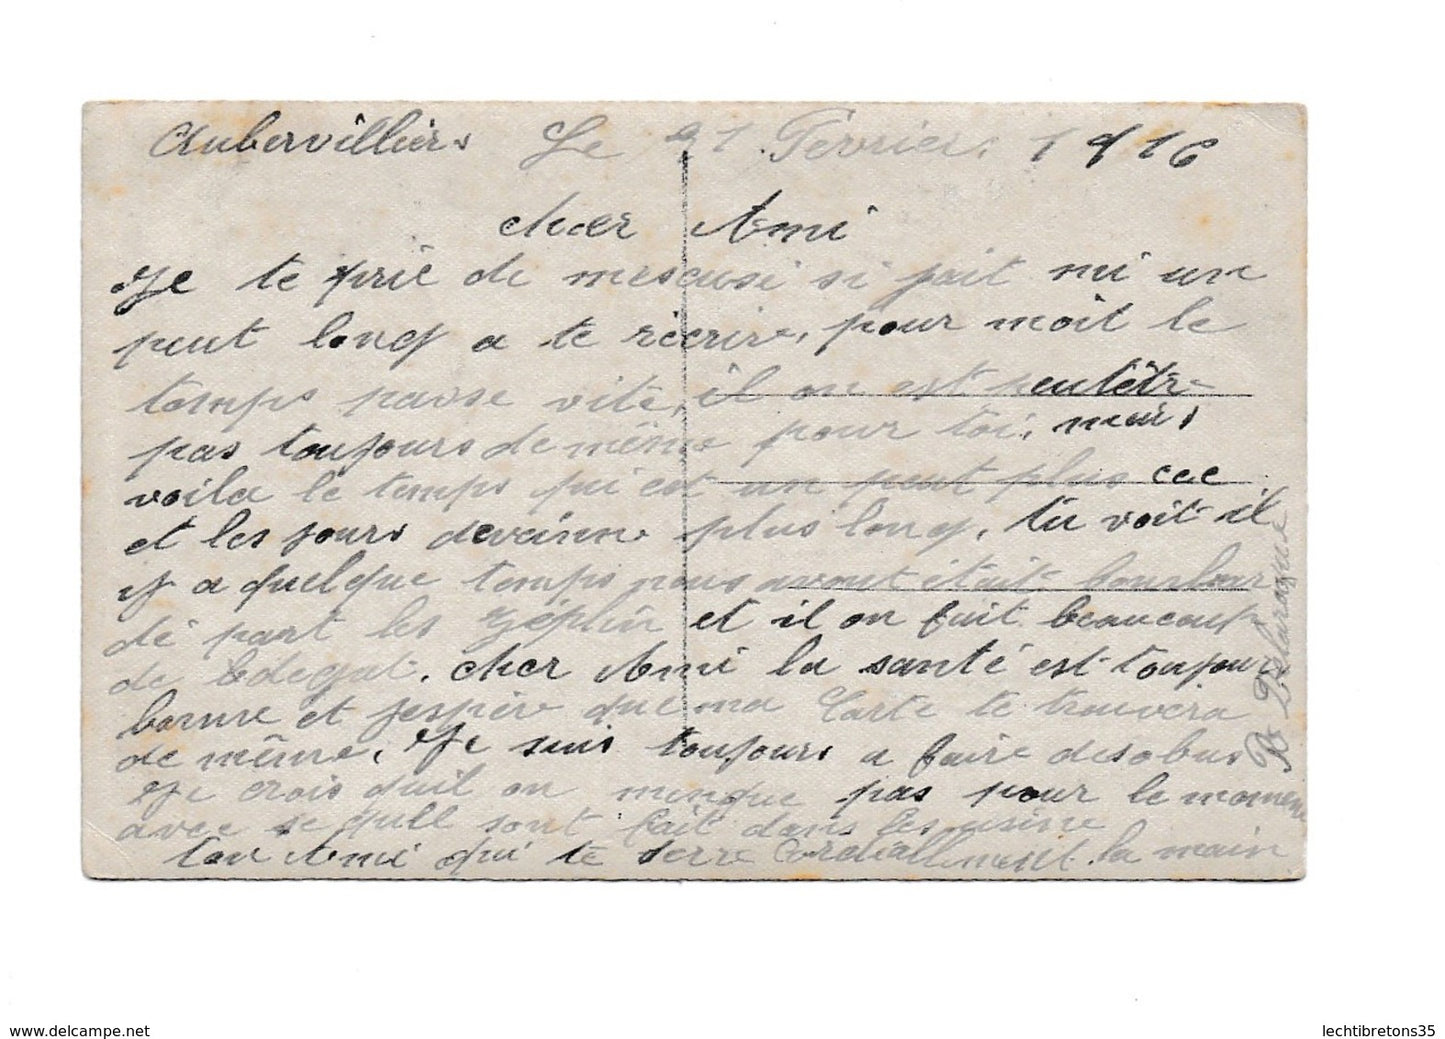 Aubervilliers Le 21 Février. 1916
cher Ami
Je te prie de mescusé si jait mi un
peut long a te récrire, pour moit le
temps passe vite, il on est peutêtre
pas toujours de même pour toi, mais
voila le temps qui est un peut plus
et les jours devienne plus long, tu voit il
y a quelque temps nous avont était bombar
dé part les Zépelin et il on fait beaucoup
de dégat. cher Ami la santé est toujour
bonne et j'espère que ma Carte te trouvera
de même, Je suis toujours a faire des obus
Je crois quil on menque pas pour le moment
avec se quil sont fait dans les usine
ton Ami qui te serre Cordiallement la main
www.delcampe.net
lechtibretons35